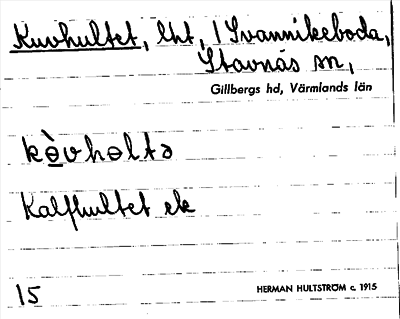 Kuvhultet, lht, i Svannikeboda,
Stavnäs sn,
Gillbergs hd, Värmlands län
Kalfhultet ek
15
HERMAN HULTSTRÖM c. 1915